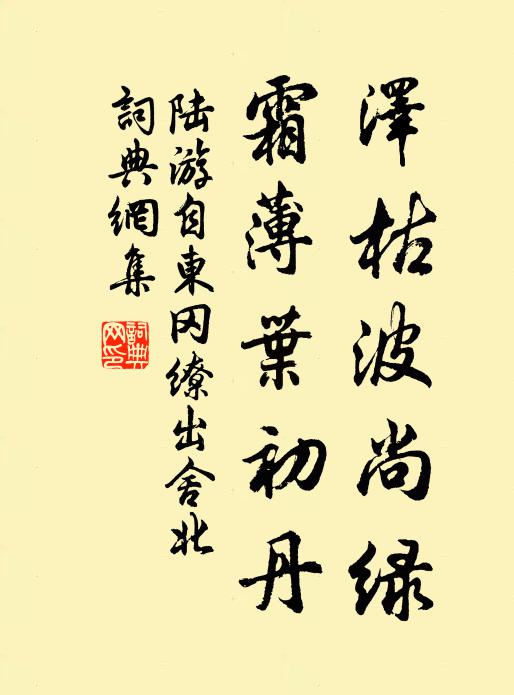 澤枯波尚綠
霜薄葉初丹
陆游自東冈繚出舍北
詞典網集
詞典網印